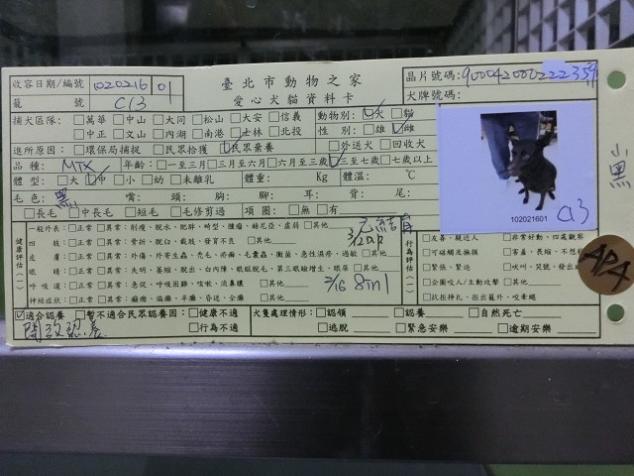 收容日期/編號 1020216 01 臺北市動物之家 晶片號碼:900042000222357
籠號 C13 愛心犬貓資料卡 犬牌號碼:
捕犬區隊: □萬華 □中山 □大同 □松山 □大安 □信義 動物別: ☑犬 □貓
□中正 □文山 □內湖 □南港 □士林 □北投 性別: □雄 ☑雌
進所原因: □環保局捕捉 □民眾拾獲 ☑民眾棄養 □外送犬 □回收犬
品種: MIX 年齡: □一至三月 □三月至六月 □六月至三歲 ☑三至七歲 □七歲以上
體型: □大 ☑中 □小 □幼 □未離乳 體重: Kg 體溫: ℃
毛色: 黑 嘴: 頭: 胸: 腳: 耳: 背: 尾:
□長毛 □中長毛 □短毛 □毛修剪過 項圈: □無 □有
102021601
C13
小黑
健康評估(一)
一般外表: □正常 □異常: 削瘦、脫水、肥胖、畸型、腫瘤、赫尼亞、虛弱 □其他
四肢: □正常 □異常: 骨折、脫臼、截肢、發育不良 □其他
皮膚: □正常 □異常: 外傷、外寄生蟲、禿毛、疥癬、毛囊蟲、黴菌、急性濕疹、過敏 □其他
眼睛: □正常 □異常: 失明、萎縮、脫出、白內障、眼瞼脫毛、第三眼瞼增生、眼屎 □其他
呼吸道: □正常 □異常: 急促、呼吸困難、咳嗽、流鼻膿 □其他
神經症狀: □正常 □異常: 癲癇、痙攣、半癱、昏迷、全癱 □其他
已結育
2/16 8in1
行為評估(一)
□友善、親近人 □非常好動、四處觀察
□可碰觸及撫摸 □害羞、長縮、不想
□緊張、緊迫 □吠叫、哭號、發出
□企圖咬人/主動攻擊 □其他
□抗拒棒扎、拒出籠外、咬牽繩
APA
☑適合認養 □暫不適合民眾認養因: □健康不適 犬隻處理情形: □認領 □認養 □自然死亡
開放認養 □行為不適 □逃脫 □緊急安樂 □逾期安樂